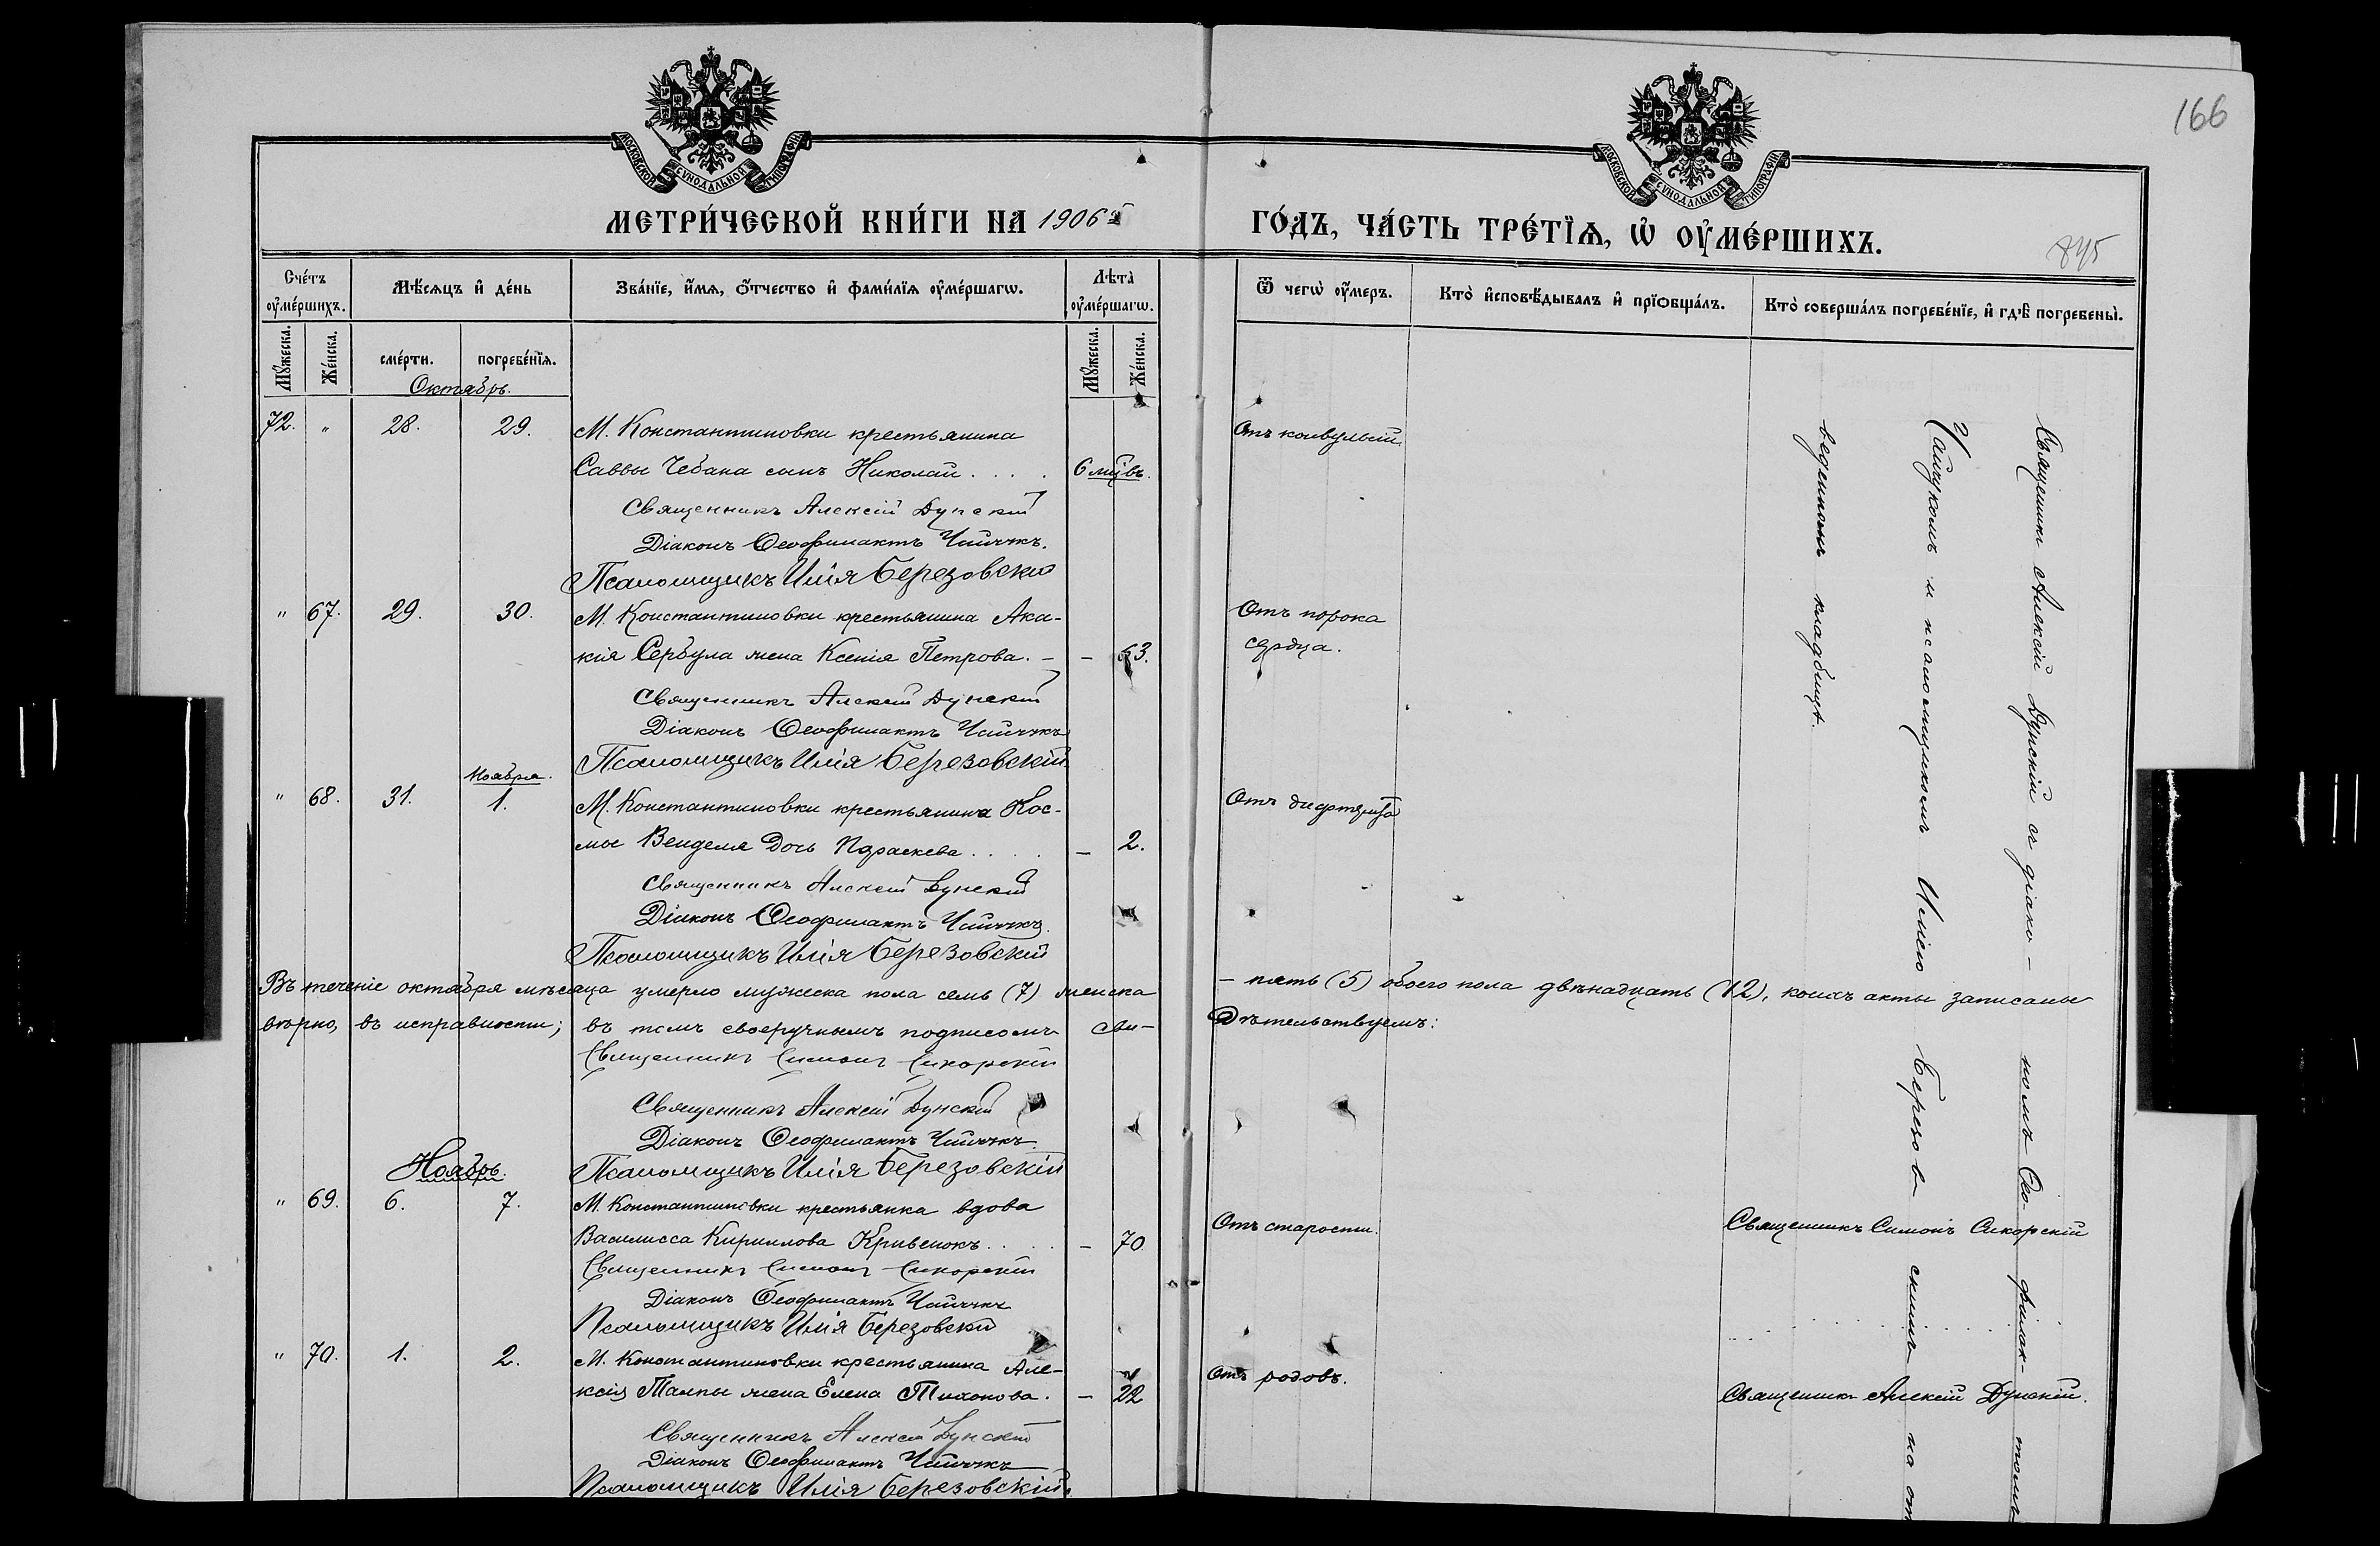 166
МОСКОВСКОЙ СѴНОДАЛЬНОЙ ТИПОГРАФІИ
МОСКОВСКОЙ СѴНОДАЛЬНОЙ ТИПОГРАФІИ
МЕТРИ́ЧЕСКОЙ КНИ́ГИ НА 1906й
ГО́ДЪ, ЧА́СТЬ ТРЕ́ТЇѦ, Ѡ҆ ОУ҆МЕ́РШИХЪ.
845
Сче́тъ оу҆ме́ршихъ.
Мѣ́сѧцъ и҆ де́нь
Зва́нїе, и҆́мѧ, ѻ҆́тчество и҆ фами́лїѧ оу҆ме́ршагѡ.
Лѣта̀ оу҆ме́ршагѡ.
Ѿ чегѡ̀ оу҆́меръ.
Кто̀ и҆сповѣ́дывалъ и҆ прїѻбща́лъ.
Кто̀ соверша́лъ погребе́нїе, и҆ гдѣ̀ погребены̀.
Мꙋ́жеска.
Же́нска.
сме́рти.
погребе́нїѧ.
Мꙋ́жеска.
Же́нска.
Октябрь.
72. " 28. 29. М. Константиновки крестьянина Отъ конвульсій.
Саввы Чебана сынъ Николай . . . . 6 мцвъ.
Священникъ Алексій Дунскій
Діаконъ Ѳеофилактъ Чайчукъ.
Псаломщикъ Илія Березовскій
" 67. 29. 30. М. Константиновки крестьянина Ака- Отъ порока
кія Сербула жена Ксенія Петрова. – – 63. сердца.
Священникъ Алексій Дунскій
Діаконъ Ѳеофилактъ Чайчукъ
Псаломщикъ Илія Березовскій
Ноября.
" 68. 31. 1. М. Константиновки крестьянина Кос- Отъ дифтерита
мы Венделя дочь Параскева . . . . – 2.
Священникъ Алексій Дунскій
Діаконъ Ѳеофилактъ Чайчукъ.
Псаломщикъ Илія Березовскій
Въ теченіе октября мѣсяца умерло мужеска пола семь (7) женска – пять (5) обоего пола двѣнадцать (12), коихъ акты записаны
вѣрно, въ исправности; въ томъ своеручнымъ подписомъ сви- дѣтельствуемъ:
Священникъ Симонъ Сикорскій
Священникъ Алексій Дунскій
Діаконъ Ѳеофилактъ Чайчукъ
Псаломщикъ Илія Березовскій
Ноябрь.
" 69. 6. 7. М. Константиновки крестьянка вдова
Василисса Кириллова Кривенокъ . . . . – 70. Отъ старости. Священникъ Симонъ Сикорскій
Священникъ Симонъ Сикорскій
Діаконъ Ѳеофилактъ Чайчукъ
Псаломщикъ Илія Березовскій
" 70. 1. 2. М. Константиновки крестьянина Але-
ксія Тампы жена Елена Тихонова. – 22 Отъ родовъ. Священникъ Алексій Дунскій.
Священникъ Алексій Дунскій
Діаконъ Ѳеофилактъ Чайчукъ
Псаломщикъ Илія Березовскій.
Священникъ Алексій Дунскій съ діако- номъ Ѳео- филак- томъ
Чайчукомъ и псаломщикомъ Иліею Березов- скимъ на от
веденномъ кладбищѣ.